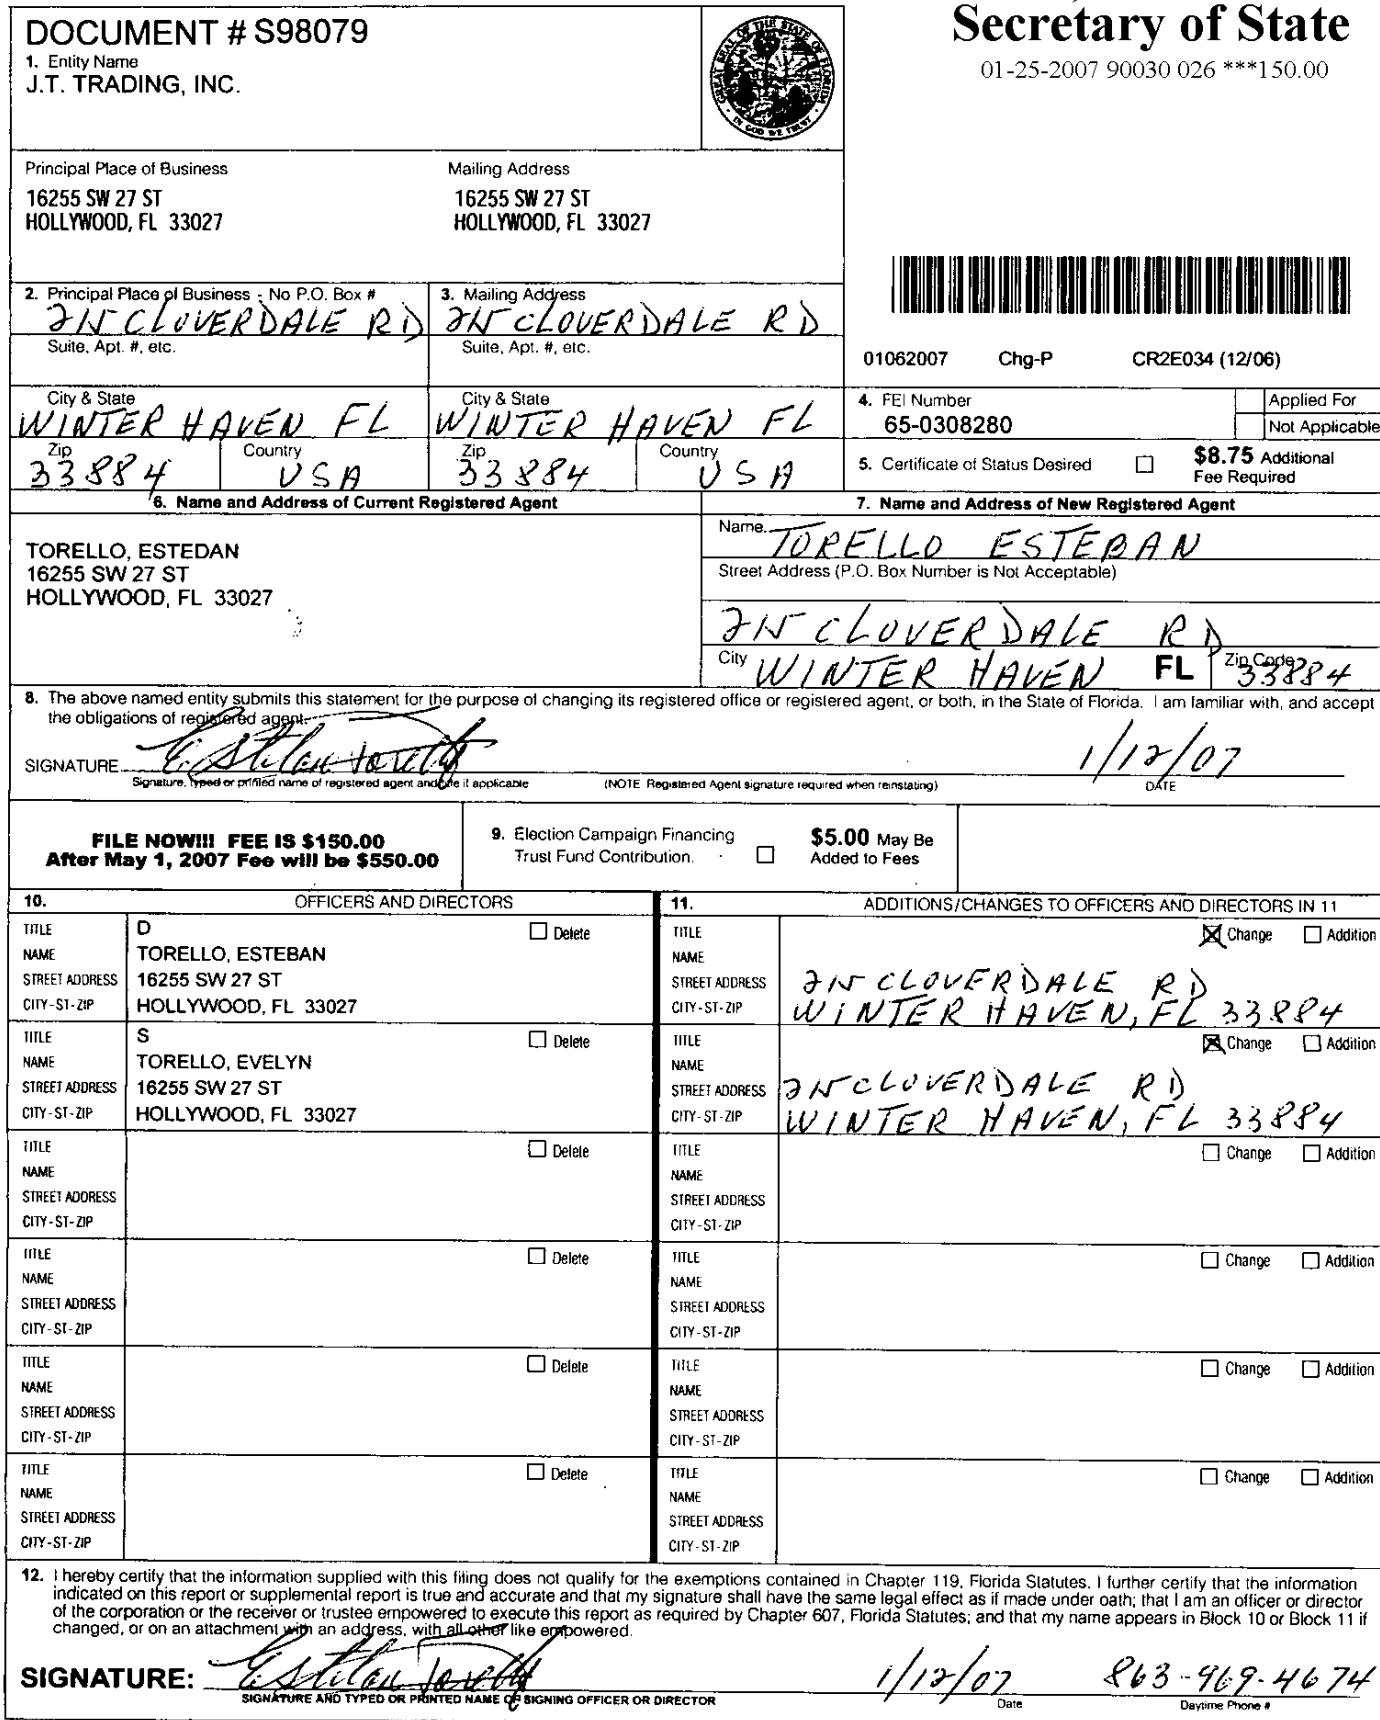 DOCUMENT # S98079
1. Entity Name
J.T. TRADING, INC.
GREAT SEAL OF THE STATE OF FLORIDA
IN GOD WE TRUST
Secretary of State
01-25-2007 90030 026 ***150.00
Principal Place of Business
16255 SW 27 ST
HOLLYWOOD, FL 33027
Mailing Address
16255 SW 27 ST
HOLLYWOOD, FL 33027
2. Principal Place of Business - No P.O. Box #
215 CLOVERDALE RD
Suite, Apt. #, etc.
City & State
WINTER HAVEN FL
Zip
33884
Country
USA
3. Mailing Address
215 CLOVERDALE RD
Suite, Apt. #, etc.
City & State
WINTER HAVEN FL
Zip
33884
Country
USA
01062007 Chg-P CR2E034 (12/06)
4. FEI Number
65-0308280
Applied For
Not Applicable
5. Certificate of Status Desired
$8.75 Additional
Fee Required
6. Name and Address of Current Registered Agent
TORELLO, ESTEDAN
16255 SW 27 ST
HOLLYWOOD, FL 33027
7. Name and Address of New Registered Agent
Name
TORELLO ESTEBAN
Street Address (P.O. Box Number is Not Acceptable)
215 CLOVERDALE RD
City WINTER HAVEN FL Zip Code 33884
8. The above named entity submits this statement for the purpose of changing its registered office or registered agent, or both, in the State of Florida. I am familiar with, and accept
the obligations of registered agent.
SIGNATURE Esteban Torello 1/12/07
Signature, typed or printed name of registered agent and title if applicable (NOTE Registered Agent signature required when reinstating) DATE
FILE NOW!!! FEE IS $150.00
After May 1, 2007 Fee will be $550.00
9. Election Campaign Financing
Trust Fund Contribution.
$5.00 May Be
Added to Fees
10. OFFICERS AND DIRECTORS
TITLE D Delete
NAME TORELLO, ESTEBAN
STREET ADDRESS 16255 SW 27 ST
CITY-ST-ZIP HOLLYWOOD, FL 33027
TITLE S Delete
NAME TORELLO, EVELYN
STREET ADDRESS 16255 SW 27 ST
CITY-ST-ZIP HOLLYWOOD, FL 33027
TITLE Delete
NAME
STREET ADDRESS
CITY-ST-ZIP
TITLE Delete
NAME
STREET ADDRESS
CITY-ST-ZIP
TITLE Delete
NAME
STREET ADDRESS
CITY-ST-ZIP
TITLE Delete
NAME
STREET ADDRESS
CITY-ST-ZIP
11. ADDITIONS/CHANGES TO OFFICERS AND DIRECTORS IN 11
TITLE Change Addition
NAME
STREET ADDRESS 215 CLOVERDALE RD
CITY-ST-ZIP WINTER HAVEN, FL 33884
TITLE Change Addition
NAME
STREET ADDRESS 215 CLOVERDALE RD
CITY-ST-ZIP WINTER HAVEN, FL 33884
TITLE Change Addition
NAME
STREET ADDRESS
CITY-ST-ZIP
TITLE Change Addition
NAME
STREET ADDRESS
CITY-ST-ZIP
TITLE Change Addition
NAME
STREET ADDRESS
CITY-ST-ZIP
TITLE Change Addition
NAME
STREET ADDRESS
CITY-ST-ZIP
12. I hereby certify that the information supplied with this filing does not qualify for the exemptions contained in Chapter 119, Florida Statutes. I further certify that the information
indicated on this report or supplemental report is true and accurate and that my signature shall have the same legal effect as if made under oath; that I am an officer or director
of the corporation or the receiver or trustee empowered to execute this report as required by Chapter 607, Florida Statutes; and that my name appears in Block 10 or Block 11 if
changed, or on an attachment with an address, with all other like empowered.
SIGNATURE: Esteban Torello 1/12/07 863-969-4674
SIGNATURE AND TYPED OR PRINTED NAME OF SIGNING OFFICER OR DIRECTOR Date Daytime Phone #